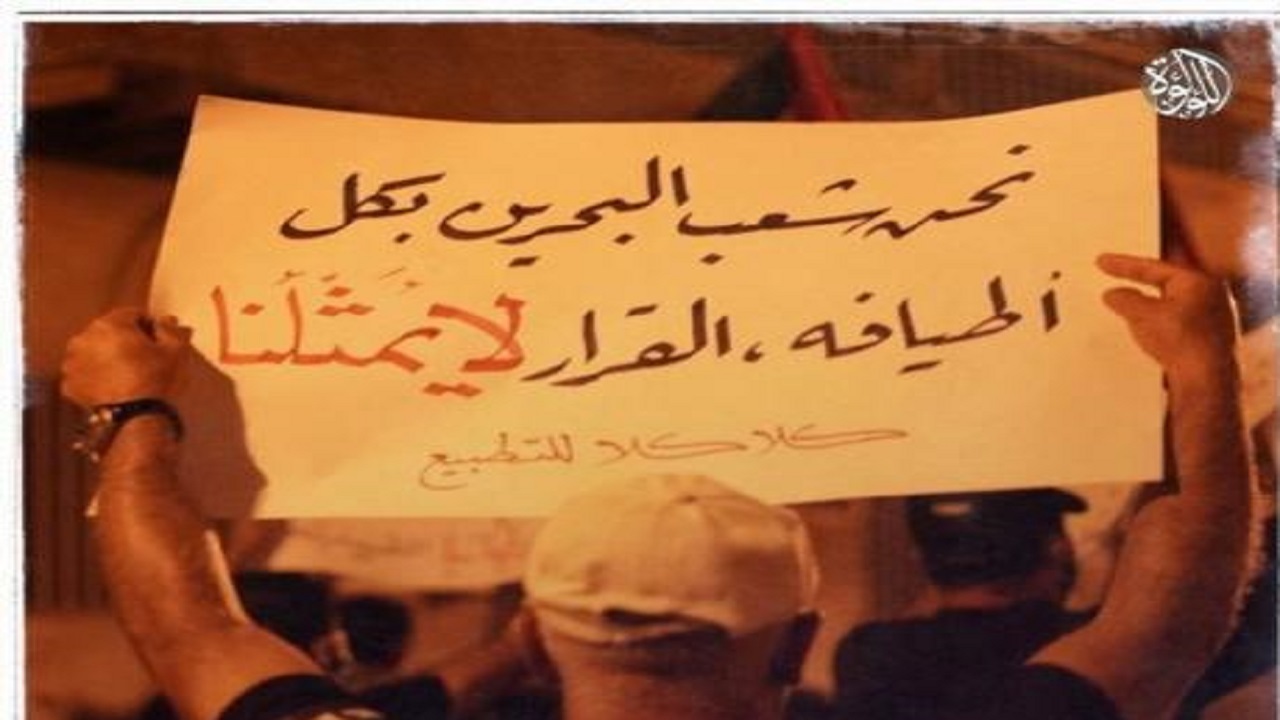 اللؤلؤة
نحن شعب البحرين بكل
أطيافه، القرار لا يُمَثّلُنا
كلا كلا للتطبيع